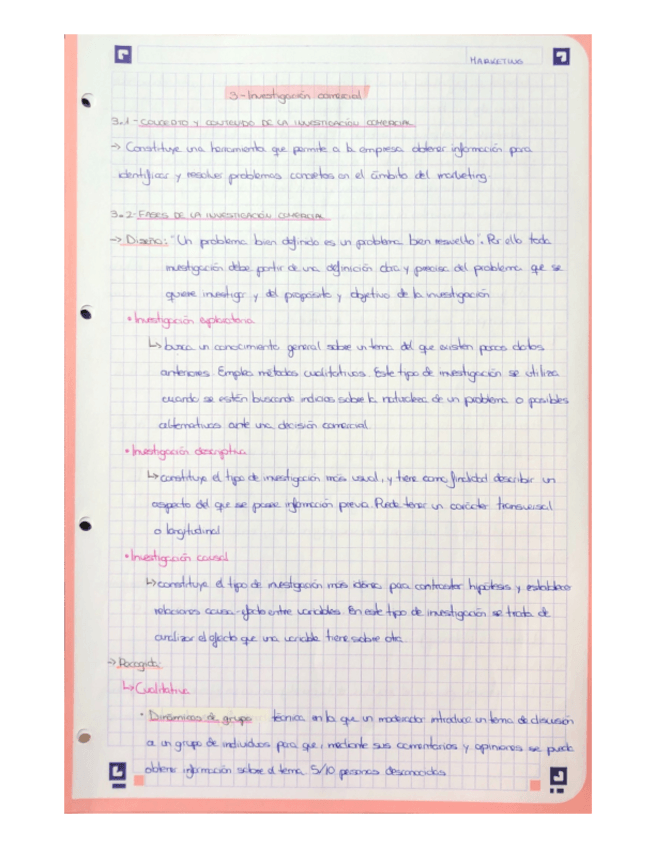 MARKETING
3-Investigación comercial
3.1- CONCEPTO Y CONTENIDO DE LA INVESTIGACIÓN COMERCIAL
→ Constituye una herramienta que permite a la empresa obtener información para
identificar y resolver problemas concretos en el ámbito del marketing.
3.2- FASES DE LA INVESTIGACIÓN COMERCIAL
→ Diseño: "Un problema bien definido es un problema bien resuelto". Por ello toda
investigación debe partir de una definición clara y precisa del problema que se
quiere investigar y del propósito y objetivo de la investigación
• Investigación exploratoria
↳ busca un conocimiento general sobre un tema del que existen pocos datos
anteriores. Emplea métodos cualitativos. Este tipo de investigación se utiliza
cuando se están buscando indicios sobre la naturaleza de un problema o posibles
alternativas ante una decisión comercial.
• Investigación descriptiva
↳ constituye el tipo de investigación más usual, y tiene como finalidad describir un
aspecto del que se posee información previa. Puede tener un carácter transversal
o longitudinal
• Investigación causal
↳ constituye el tipo de investigación más idóneo para contrastar hipótesis y establecer
relaciones causa-efecto entre variables. En este tipo de investigación se trata de
analizar el efecto que una variable tiene sobre otra.
→ Recogida:
↳ Cualitativa
• Dinámicas de grupo técnica en la que un moderador introduce un tema de discusión
a un grupo de individuos para que, mediante sus comentarios y opiniones se pueda
obtener información sobre el tema. 5/10 personas desconocidas